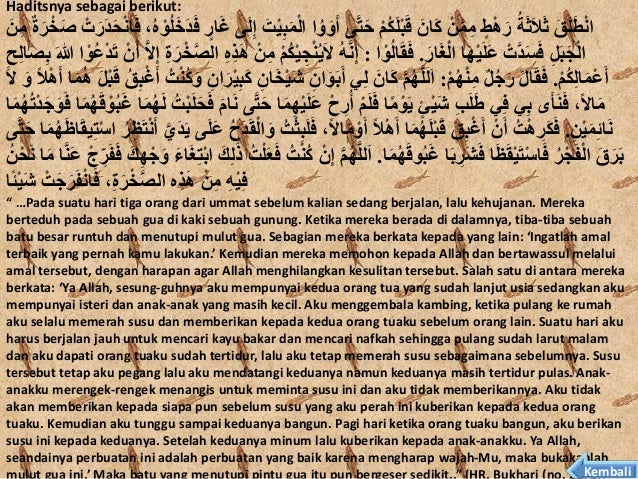 Haditsnya sebagai berikut:
اِنْطَلَقَ ثَلَاثَةُ رَهْطٍ مِمَّنْ كَانَ قَبْلَكُمْ حَتَّى أَوَوُا الْمَبِيْتَ إِلَى غَارٍ فَدَخَلُوْهُ، فَانْحَدَرَتْ صَخْرَةٌ مِنَ
الْجَبَلِ فَسَدَّتْ عَلَيْهَا الْغَارَ. فَقَالُوْا : إِنَّهُ لاَيُنْجِيْكُمْ مِنْ هَذِهِ الصَّخْرَةِ إِلاَّ أَنْ تَدْعُوْا اللهَ بِصَالِحِ
أَعْمَالِكُمْ. فَقَالَ رَجُلٌ مِنْهُمْ: اَللَّهُمَّ كَانَ لِي أَبَوَانِ شَيْخَانِ كَبِيْرَانِ وَكُنْتُ أَغْبِقُ قَبْلَ هُمَا أَهْلاً وَ لَا
مَالاً، فَنَأَى بِي فِي طَلَبِ شَيْئٍ يَوْمًا فَلَمْ أَرِحْ عَلَيْهِمَا حَتَّى نَامَ فَحَلَبْتُ لَهُمَا غَبُوْقَهُمَا فَوَجَدْتُهُمَا
نَائِمَيْنِ. فَكَرِهْتُ أَنْ أَغْبِقَ قَبْلَهُمَا أَهْلاً أَوْمَالاً، فَلَبِثْتُ وَالْقَدَحُ عَلَى يَدَيَّ أَنْتَظِرُ اسْتِيقَاظَهُمَا حَتَّى
بَرَقَ الْفَجْرُ فَاسْتَيْقَظَا فَشَرِبَا غَبُوقَهُمَا. اَللَّهُمَّ إِنْ كُنْتُ فَعَلْتُ ذَلِكَ ابْتِغَاءَ وَجْهِكَ فَفَرِّجْ عَنَّا مَا نَحْنُ
فِيْهِ مِنْ هَذِهِ الصَّخْرَةِ، فَانْفَرَجَتْ شَيْئًا
“ …Pada suatu hari tiga orang dari ummat sebelum kalian sedang berjalan, lalu kehujanan. Mereka
berteduh pada sebuah gua di kaki sebuah gunung. Ketika mereka berada di dalamnya, tiba-tiba sebuah
batu besar runtuh dan menutupi mulut gua. Sebagian mereka berkata kepada yang lain: ‘Ingatlah amal
terbaik yang pernah kamu lakukan.’ Kemudian mereka memohon kepada Allah dan bertawassul melalui
amal tersebut, dengan harapan agar Allah menghilangkan kesulitan tersebut. Salah satu di antara mereka
berkata: ‘Ya Allah, sesung-guhnya aku mempunyai kedua orang tua yang sudah lanjut usia sedangkan aku
mempunyai isteri dan anak-anak yang masih kecil. Aku menggembala kambing, ketika pulang ke rumah
aku selalu memerah susu dan memberikan kepada kedua orang tuaku sebelum orang lain. Suatu hari aku
harus berjalan jauh untuk mencari kayu bakar dan mencari nafkah sehingga pulang sudah larut malam
dan aku dapati orang tuaku sudah tertidur, lalu aku tetap memerah susu sebagaimana sebelumnya. Susu
tersebut tetap aku pegang lalu aku mendatangi keduanya namun keduanya masih tertidur pulas. Anak-
anakku merengek-rengek menangis untuk meminta susu ini dan aku tidak memberikannya. Aku tidak
akan memberikan kepada siapa pun sebelum susu yang aku perah ini kuberikan kepada kedua orang
tuaku. Kemudian aku tunggu sampai keduanya bangun. Pagi hari ketika orang tuaku bangun, aku berikan
susu ini kepada keduanya. Setelah keduanya minum lalu kuberikan kepada anak-anakku. Ya Allah,
seandainya perbuatan ini adalah perbuatan yang baik karena mengharap wajah-Mu, maka bukakanlah
mulut gua ini.’ Maka batu yang menutupi pintu gua itu pun bergeser sedikit..” (HR. Bukhari (no.
Kembali